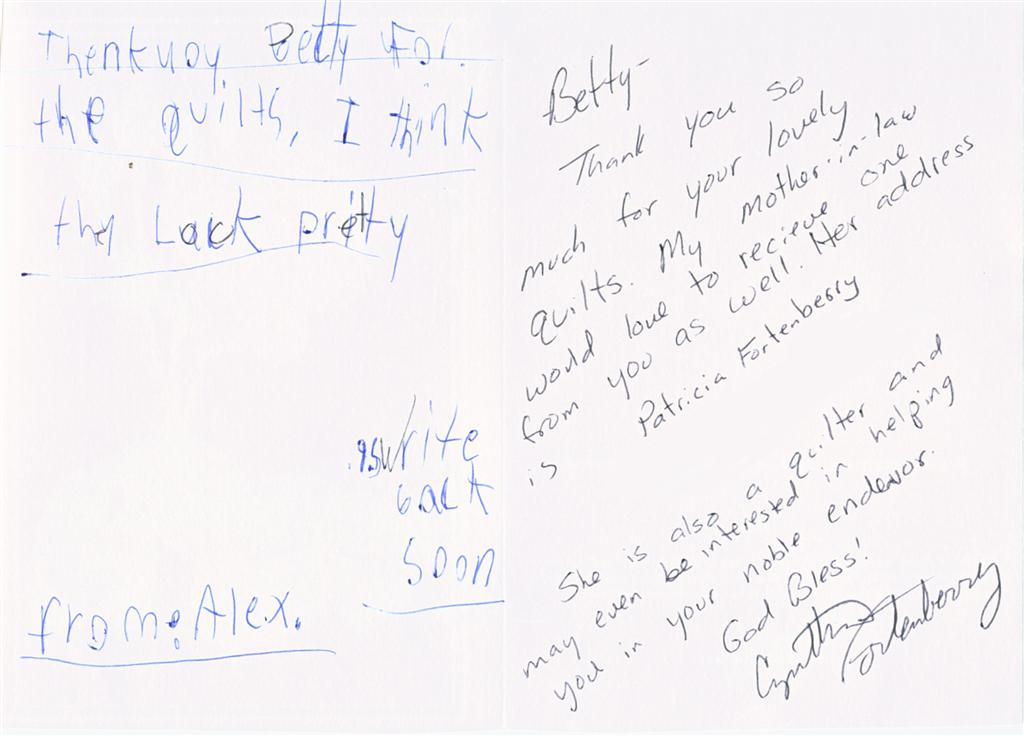 Thenkyoy Betty For.
the quilts, I think
they Lack pretty
.P.S write
back
soon
from: Alex.
Betty-
Thank you so
much for your lovely
quilts. My mother-in-law
would love to recieve one
from you as well. Her address
is Patricia Fortenberry
She is also a quilter and
may even be interested in helping
you in your noble endeavor.
God Bless!
Cynthia
Fortenberry